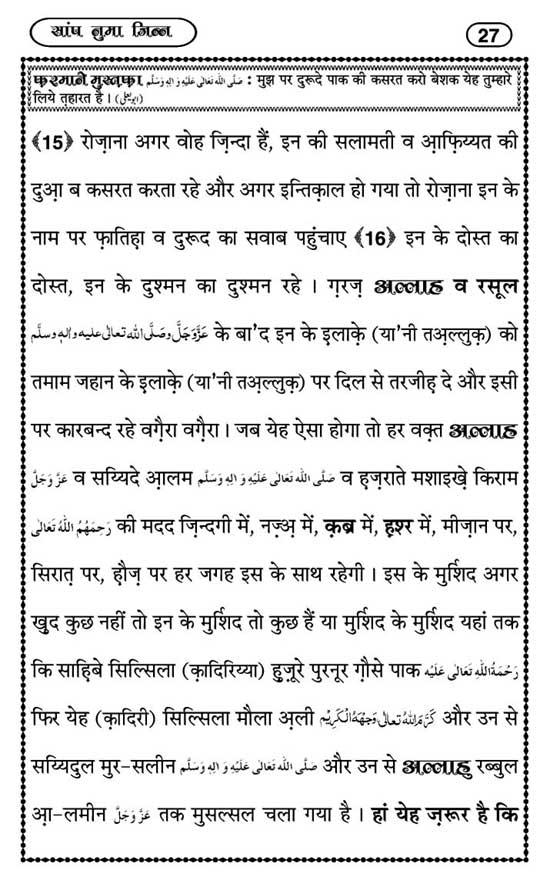 सांप नुमा जिन्न
27
फ़रमाने मुस्त़फ़ा صَلَّى اللّٰهُ تَعَالٰى عَلَيْهِ وَاٰلِهٖ وَسَلَّم : मुझ पर दुरूदे पाक की कसरत करो बेशक येह तुम्हारे
लिये त़हारत है । (ابو یعلی)
﴾15﴿ रोज़ाना अगर वोह ज़िन्दा हैं, इन की सलामती व आ़फ़िय्यत की
दुआ़ ब कसरत करता रहे और अगर इन्तिक़ाल हो गया तो रोज़ाना इन के
नाम पर फ़ातिह़ा व दुरूद का सवाब पहुंचाए ﴾16﴿ इन के दोस्त का
दोस्त, इन के दुश्मन का दुश्मन रहे । ग़रज़ अल्लाह व रसूल
عَزَّوَجَلَّ وصَلَّى الله تعالٰى عليه واٰلهٖ وسلَّم के बा'द इन के इ़लाक़े (या'नी तअ़ल्लुक़) को
तमाम जहान के इ़लाक़े (या'नी तअ़ल्लुक़) पर दिल से तरजीह़ दे और इसी
पर कारबन्द रहे वग़ैरा वग़ैरा । जब येह ऐसा होगा तो हर वक़्त अल्लाह
عَزَّوَجَلَّ व सय्यिदे आ़लम صَلَّى اللّٰهُ تَعَالٰى عَلَيْهِ وَاٰلِهٖ وَسَلَّم व ह़ज़राते मशाइख़े किराम
رَحِمَهُمُ اللّٰهُ تَعَالٰى की मदद ज़िन्दगी में, नज़्अ़ में, क़ब्र में, ह़श्र में, मीज़ान पर,
सिरात़ पर, ह़ौज़ पर हर जगह इस के साथ रहेगी । इस के मुर्शिद अगर
ख़ुद कुछ नहीं तो इन के मुर्शिद तो कुछ हैं या मुर्शिद के मुर्शिद यहां तक
कि साह़िबे सिल्सिला (क़ादिरिय्या) हुज़ूरे पुरनूर ग़ौसे पाक رَحْمَةُ اللّٰهِ تَعَالٰى عَلَيْه
फिर येह (क़ादिरी) सिल्सिला मौला अ़ली كَرَّمَ اللّٰهُ تعالٰى وَجْهَهُ الْكَرِيْم और उन से
सय्यिदुल मुर-सलीन صَلَّى اللّٰهُ تَعَالٰى عَلَيْهِ وَاٰلِهٖ وَسَلَّم और उन से अल्लाहु रब्बुल
आ़-लमीन عَزَّوَجَلَّ तक मुसल्सल चला गया है । हां येह ज़रूर है कि